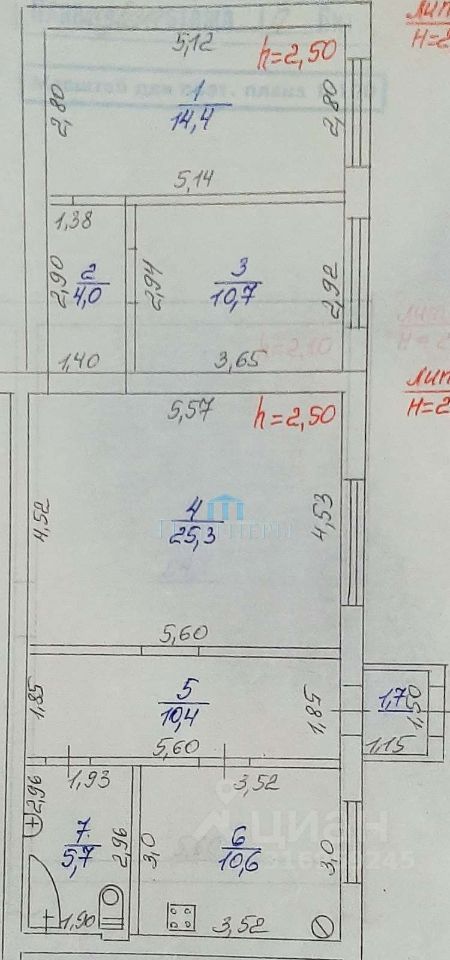 Лит
H=2
5,12
h=2,50
2,80
1
14,4
2,80
5,14
1,38
2,90
2
4,0
2,94
3
10,7
2,92
1,40
3,65
h=2,10
Лит
H=2
5,57
h=2,50
4,52
4
25,3
4,53
5,60
1,85
5
10,4
1,85
1,7
1,50
5,60
1,15
2,96
1,93
3,52
циан
7
5,7
2,96
3,0
6
10,6
3,0
1,90
3,52